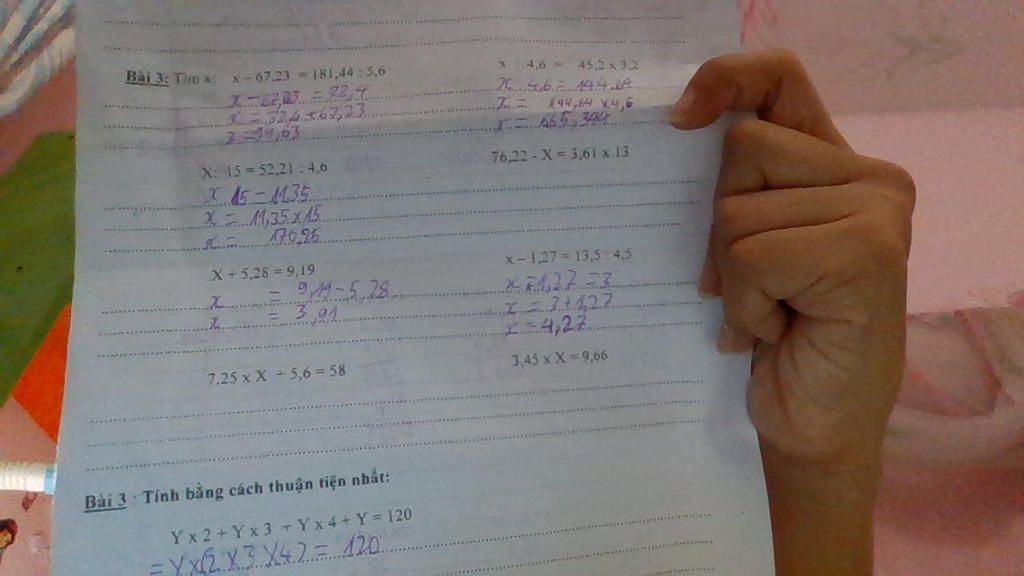 Bài 3: Tìm x: x – 67,23 = 181,44 : 5,6
x : 4,6 = 45,2 x 3,2
x = 32,4 + 67,23
x = 99,63
x 4,6 = 144,64
x = 144,64 x 4,6
x = 665,344
X: 15 = 52,21 : 4,6
76,22 - X = 3,61 x 13
x 15 = 11,35
x = 11,35 x 15
x = 170,25
X + 5,28 = 9,19
x – 1,27 = 13,5 : 4,5
x = 9,19 - 5,28
x = 3,91
x - 1,27 = 3
x = 3 + 1,27
x = 4,27
7,25 x X + 5,6 = 58
3,45 x X = 9,66
Bài 3 : Tính bằng cách thuận tiện nhất:
Y x 2 + Y x 3 + Y x 4 + Y = 120
= Y x (2 x 3 x 4) = 120